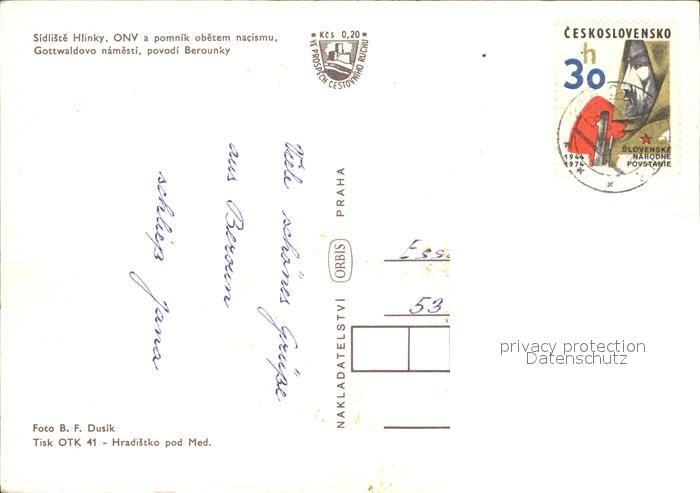 Sídliště Hlinky, ONV a pomník obětem nacismu,
Gottwaldovo náměstí, povodí Berounky
Kčs 0,20
VE PROSPĚCH CESTOVNÍHO RUCHU
ČESKOSLOVENSKO
30 h
1944
1974
SLOVENSKÉ
NÁRODNÉ
POVSTANIE
Viele schönes Grüße
aus Beroun
Jana
NAKLADATELSTVÍ ORBIS PRAHA
Ess
53
privacy protection
Datenschutz
Foto B. F. Dusík
Tisk OTK 41 - Hradištko pod Med.